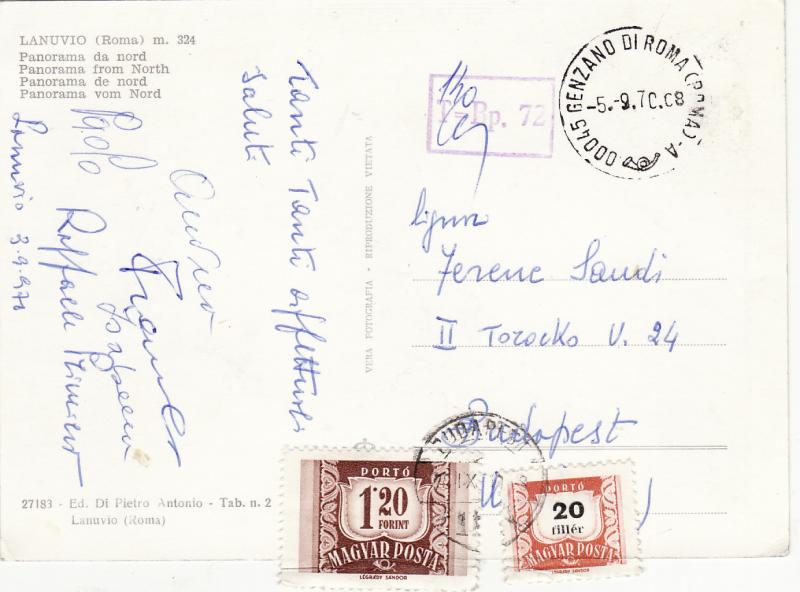 LANUVIO (Roma) m. 324
Panorama da nord
Panorama from North
Panorama de nord
Panorama vom Nord
Tanti Tanti affettuosi
Saluti
Andrea
Raffaele
Lanuvio 3.9.970
27183 - Ed. Di Pietro Antonio - Tab. n. 2
Lanuvio (Roma)
VERA FOTOGRAFIA - RIPRODUZIONE VIETATA
T=Bp. 72
00045 GENZANO DI ROMA (ROMA) - A
-5.-9.70.08
Ferenc Sandi
II Torocko U. 24
Budapest
BUDAPEST
IX
PORTÓ
1'20
FORINT
MAGYAR POSTA
LÉGRÁDY SÁNDOR
PORTÓ
20
fillér
MAGYAR POSTA
LÉGRÁDY SÁNDOR